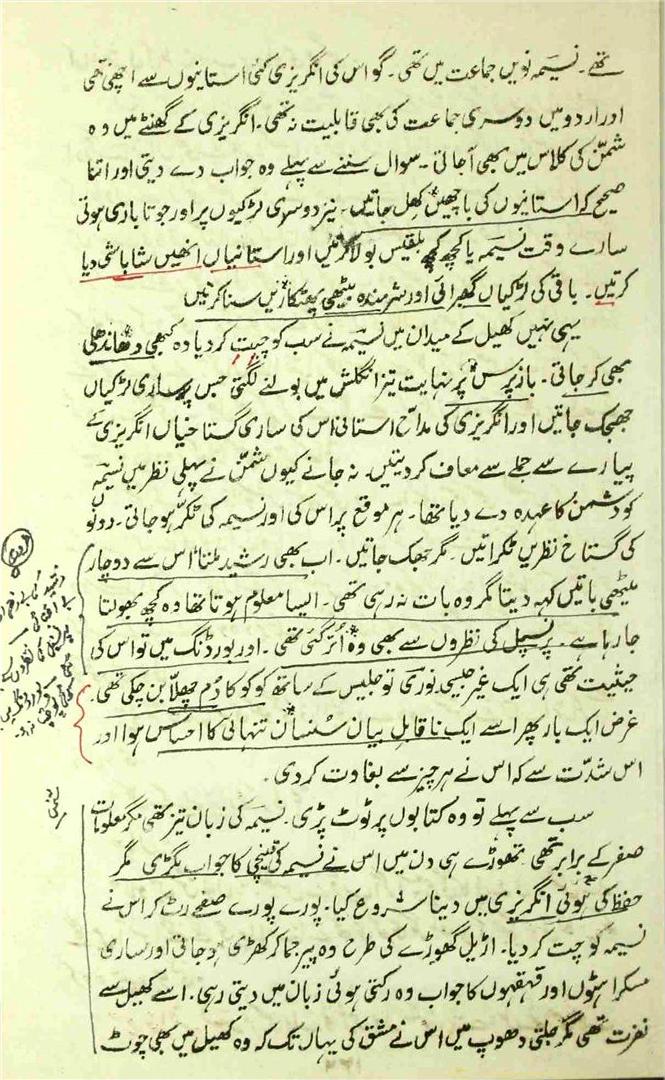 تھے۔ نسیمہ نویں جماعت میں تھی۔ گو اس کی انگریزی کئی استانیوں سے اچھی تھی
اور اردو میں دوسری جماعت کی بھی قابلیت نہ تھی۔ انگریزی کے گھنٹے میں وہ
شمنّ کی کلاس میں بھی آجاتی۔ سوال سننے سے پہلے وہ جواب دے دیتی اور اتنا
صحیح کہ استانیوں کی باچھیں کھل جاتیں۔ نیز دوسری لڑکیوں پر اور جوتا باری ہوتی
سارے وقت نسیمہ یا کچھ کچھ بلقیس بولا کرتیں اور استانیاں انھیں شاباشی دیا
کرتیں۔ باقی کی لڑکیاں گھبرائی اور شرمندہ بیٹھی پھٹکاریں سنا کرتیں
یہی نہیں کھیل کے میدان میں نسیمہ نے سب کو چِت کر دیا وہ کبھی دھاندھلی
بھی کر جاتی۔ باز پرس پر نہایت تیز انگلش میں بولنے لگتی جس پر ساری لڑکیاں
جھجک جاتیں اور انگریزی کی مداح استانی اس کی ساری گستاخیاں انگریزی کے
پیارے سے جملے سے معاف کر دیتیں۔ نہ جانے کیوں شمنّ نے پہلی نظر میں نسیمہ
کو دشمن کا عہدہ دے دیا تھا۔ ہر موقع پر اس کی اور نسیمہ کی ٹکر ہو جاتی۔ دونوں
کی گستاخ نظریں ٹکراتیں۔ مگر جھک جاتیں۔ اب بھی رشید ملتا اس سے دوچار
میٹھی باتیں کہہ دیتا مگر وہ بات نہ رہی تھی۔ ایسا معلوم ہوتا تھا وہ کچھ بھولتا
جا رہا ہے۔ پرنسپل کی نظروں سے بھی وہ اُتر گئی تھی۔ اور بورڈنگ میں تو اس کی
حیثیت تھی ہی ایک غیر جیسی نوری تو جلیس کے ساتھ کو کو کا دُم چھلّا بن چکی تھی۔
غرض ایک بار پھر اسے ایک ناقابلِ بیان سُنسان تنہائی کا احساس ہوا اور
اس شدّت سے کہ اس نے ہر چیز سے بغاوت کر دی۔
سب سے پہلے تو وہ کتابوں پر ٹوٹ پڑی۔ نسیمہ کی زبان تیز تھی مگر معلومات
صفر کے برابر تھی۔ تھوڑے ہی دن میں اس نے نسیمہ کی قینچی کا جواب بگڑی مگر
حفظ کی ہوئی انگریزی میں دینا شروع کیا۔ پورے پورے صفحے رٹ کر اس نے
نسیمہ کو چت کر دیا۔ اڑیل گھوڑے کی طرح وہ پیر جما کر کھڑی ہو جاتی اور ساری
مسکراہٹوں اور قہقہوں کا جواب وہ رکتی ہوئی زبان میں دیتی رہی۔ اسے کھیل سے
نفرت تھی مگر جلتی دھوپ میں اس نے مشق کی یہاں تک کہ وہ کھیل میں بھی چوٹ